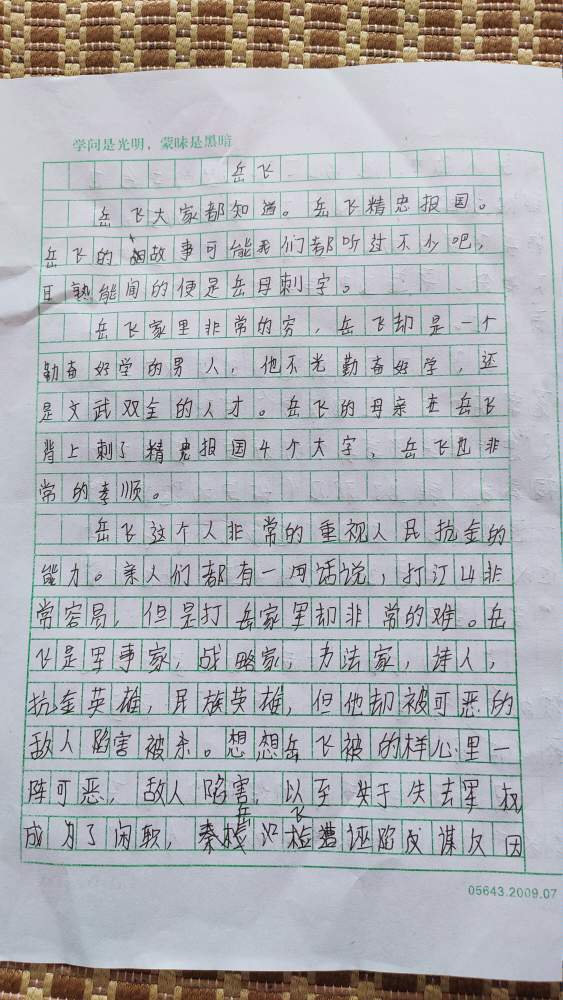 学问是光明，蒙昧是黑暗
岳飞
岳飞大家都知道。岳飞精忠报国。
岳飞的故事可能我们都听过不少吧，
熟能间的便是岳母刺字。
岳飞家里非常的穷，岳飞却是一个
勤奋好学的男人，他不光勤奋好学，还
是文武双全的人才。岳飞的母亲在岳飞
背上刺了精忠报国4个大字，岳飞也非
常的孝顺。
岳飞这个人非常的重视人民抗金的
能力。亲人们都有一句话说，打江山非
常容易，但是打岳家军却非常的难。岳
飞是军事家，战略家，办法家，诗人，
抗金英雄，民族英雄，但他却被可恶的
敌人陷害被杀。想想岳飞被的样心里一
阵可恶，敌人陷害，以至失于失去军权
成为了闲职，秦桧岳飞遭诬陷反谋反因
05643.2009.07